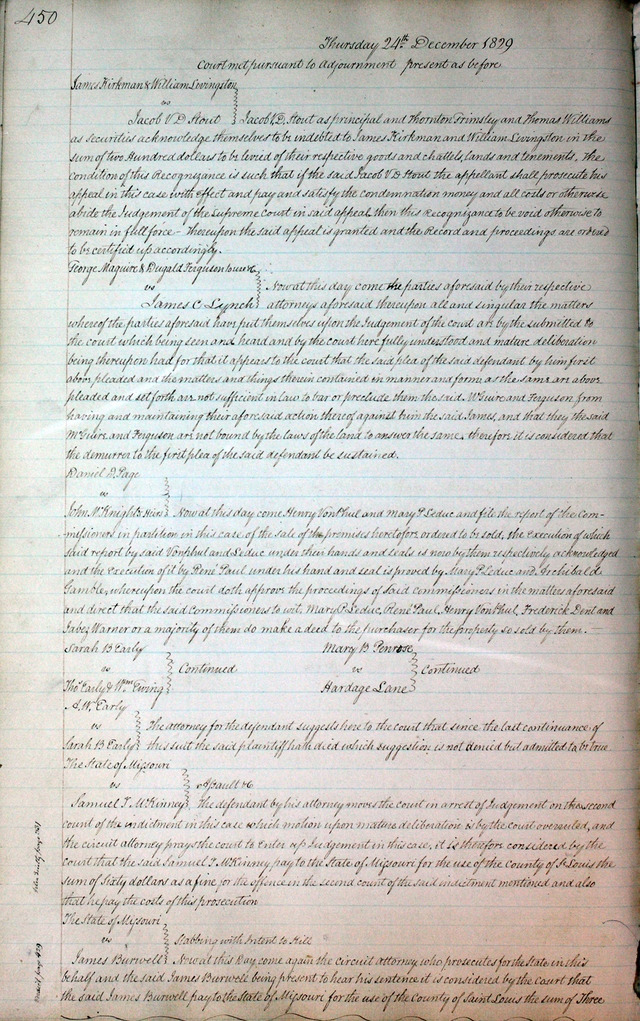 450
Thursday 24th December 1829
Court met pursuant to adjournment present as before
James Kirkman & William Livingston
vs
Jacob V D Stout } Jacob V. D. Stout as principal and Thornton Grimsley and Thomas Williams
as securities acknowledge themselves to be indebted to James Kirkman and William Livingston in the
sum of two Hundred dollars to be levied of their respective goods and chattels, lands and tenements, the
condition of this Recognizance is such that if the said Jacob V D Stout the appellant shall prosecute his
appeal in this case with effect and pay and satisfy the condemnation money and all costs or otherwise
abide the Judgement of the Supreme court in said appeal then this Recognizance to be void otherwise to
remain in full force - thereupon the said appeal is granted and the Record and proceedings are ordered
to be certified up accordingly.
George Maguire & Dugald Ferguson
vs } Now at this day come the parties aforesaid by their respective
James C Lynch } attorneys aforesaid thereupon all and singular the matters
whereof the parties aforesaid have put themselves upon the Judgement of the court are by the submitted to
the court which being seen and heard and by the court here fully understood and mature deliberation
being thereupon had for that it appears to the court that the said plea of the said defendant by him first
above pleaded and the matters and things therein contained in manner and form as the same are above
pleaded and set forth are not sufficient in law to bar or preclude them the said McGuire and Ferguson from
having and maintaining their aforesaid action thereof against him the said James, and that they the said
McGuire and Ferguson are not bound by the laws of the land to answer the same. therefore it is considered that
the demurrer to the first plea of the said defendant be sustained.
Daniel D Page
vs
John McKnights Heirs } Now at this day come Henry VonPhul and Mary P Leduc and file the report of the Com-
-missioners in partition in this case of the sale of the premises heretofore ordered to be sold, the execution of which
said report by said Vonphul and Leduc under their hands and seals is now by them respectively acknowledged
and the execution of it by René Paul under his hand and seal is proved by Mary P Leduc and Archibald
Gamble, whereupon the court doth approve the proceedings of said commissioners in the matters aforesaid
and direct that the said Commissioners to wit, Mary P Leduc, René Paul, Henry VonPhul, Frederick Dent and
Jabez Warner or a majority of them do make a deed to the purchaser for the property so sold by them.
Sarah B Early
vs } Continued
Thos Early & Wm Ewing
Mary B Penrose
vs } Continued
Hardage Lane
A. W. Early
vs } The attorney for the defendant suggests here to the court that since the last continuance of
Sarah B Early } the suit the said plaintiff hath died which suggestion is not denied but admitted to be true
The State of Missouri
vs } Assault &c
Samuel T. McKinney } the defendant by his attorney moves the court in arrest of Judgement on the second
count of the indictment in this case which motion upon mature deliberation is by the court overruled, and
the circuit attorney prays the court to Enter up Judgement in this case, it is therefore considered by the
court that the said Samuel T. McKinney pay to the State of Missouri for the use of the County of St Louis the
sum of Sixty dollars as a fine for the offence in the second count of the said indictment mentioned and also
that he pay the costs of this prosecution
The State of Missouri
vs } Stabbing with Intent to Kill
James Burwell } Now at this Day come again the circuit attorney who prosecutes for the State in this
behalf and the said James Burwell being present to hear his sentence it is considered by the Court that
the said James Burwell pay to the State of Missouri for the use of the County of Saint Louis the sum of Three